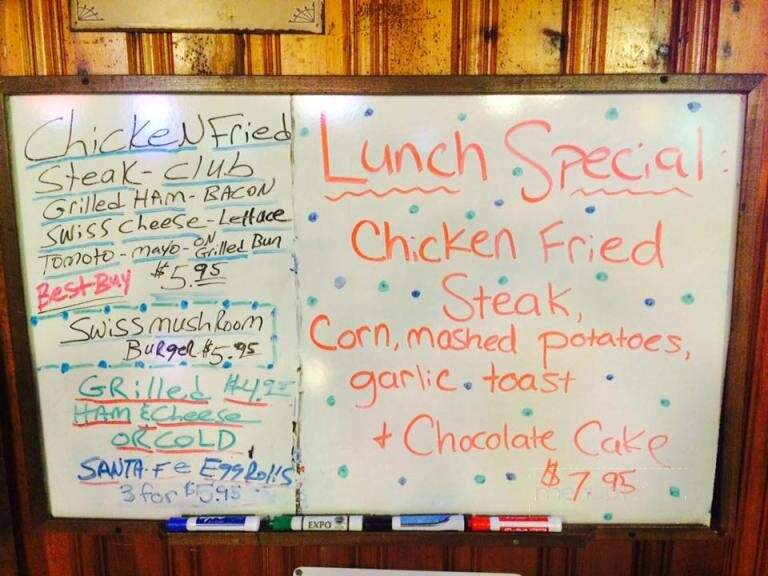 ChickeN Fried
Steak - club
Grilled HAM - BACON
SWiSS cheese - Lettace
Tomoto - mayo - ON Grilled Bun
Best Buy $5.95
Swiss mushRoom
BuRgeR $5.95
GRilled
HAM & Cheese
OR COLD
SANTA-Fe Egg Rolls
3 for $5.95
Lunch Special:
Chicken Fried
Steak,
Corn, mashed potatoes,
garlic toast
+ Chocolate Cake
$7.95
EXPO